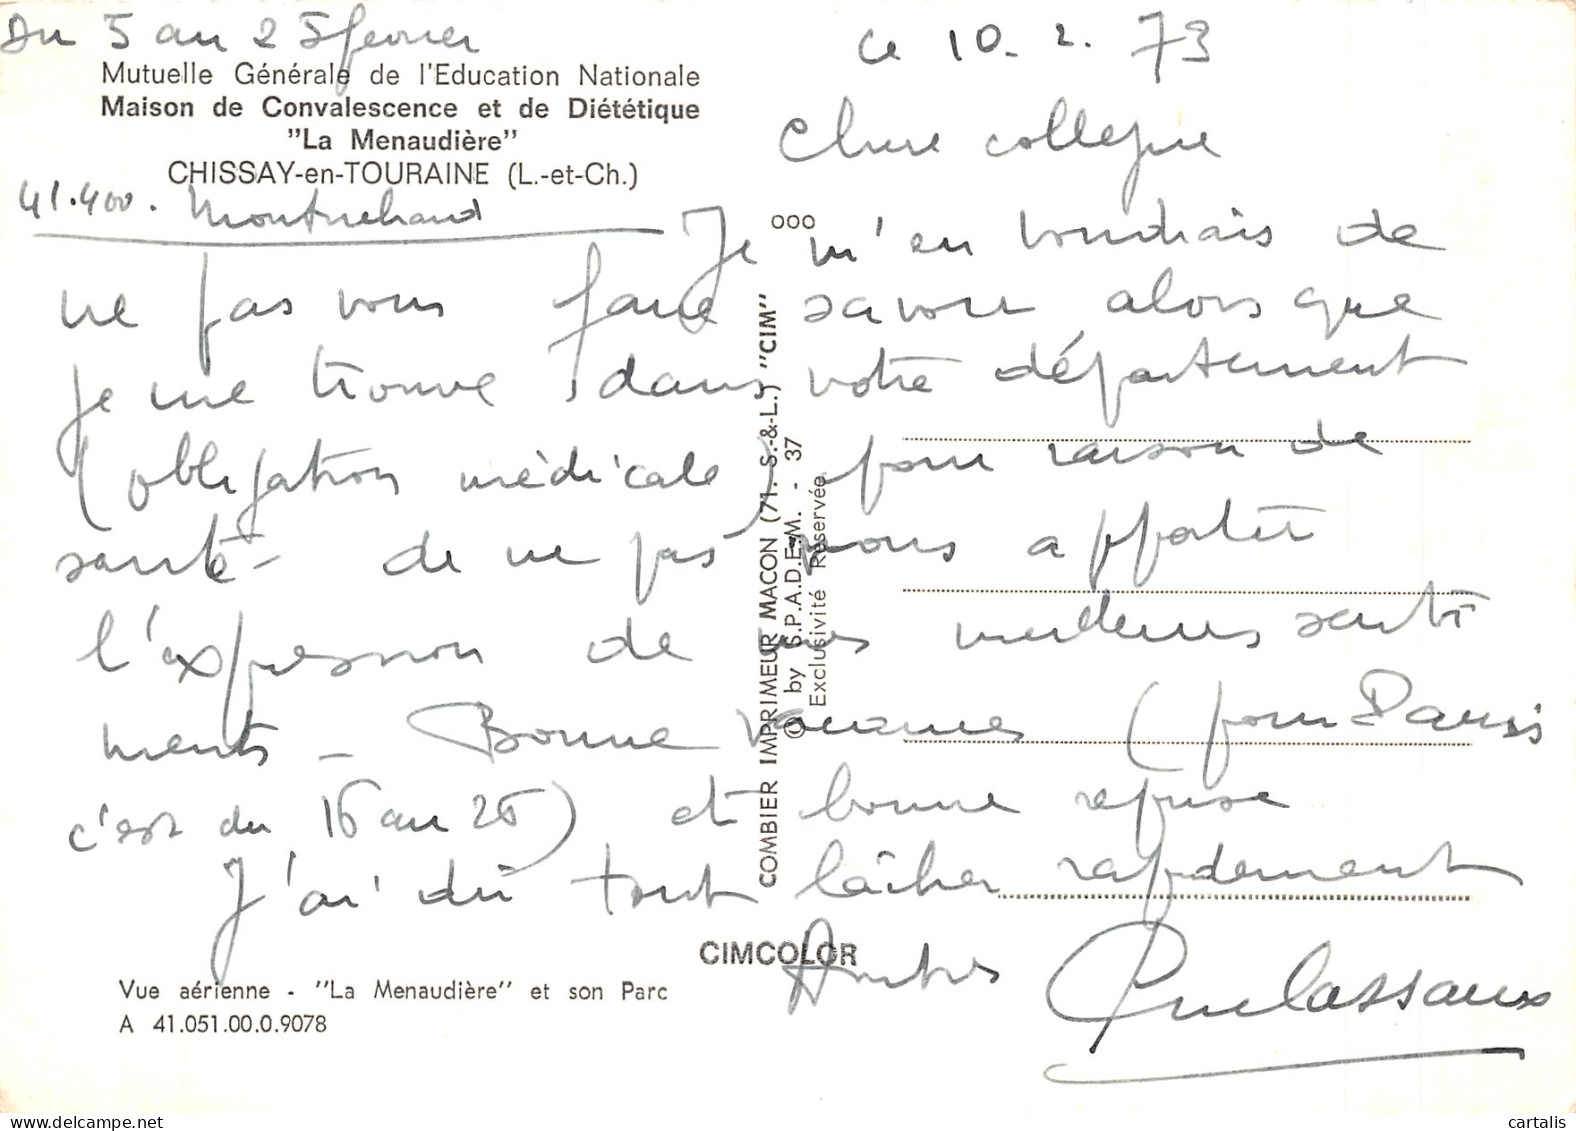 Du 5 au 25 février
Mutuelle Générale de l'Education Nationale
Maison de Convalescence et de Diététique
"La Menaudière"
CHISSAY-en-TOURAINE (L.-et-Ch.)
41.400. Montrichard
Ce 10. 2. 73
Chère collègue
Je m'en voudrais de
ne pas vous faire savoir alors que
je me trouve dans votre département
(obligation médicale) pour raison de
santé - de ne pas vous apporter
l'expression de mes meilleurs senti
ments - Bonne vacances (pour Paris
c'est du 16 au 26) et bonne reprise
J'ai dû tout lâcher rapidement
Amitiés
ooo
COMBIER IMPRIMEUR MACON (71. S.-&-L.) "CIM"
© by S.P.A.D.E.M. - 37
Exclusivité Réservée
CIMCOLOR
Vue aérienne - "La Menaudière" et son Parc
A 41.051.00.0.9078
cartalis